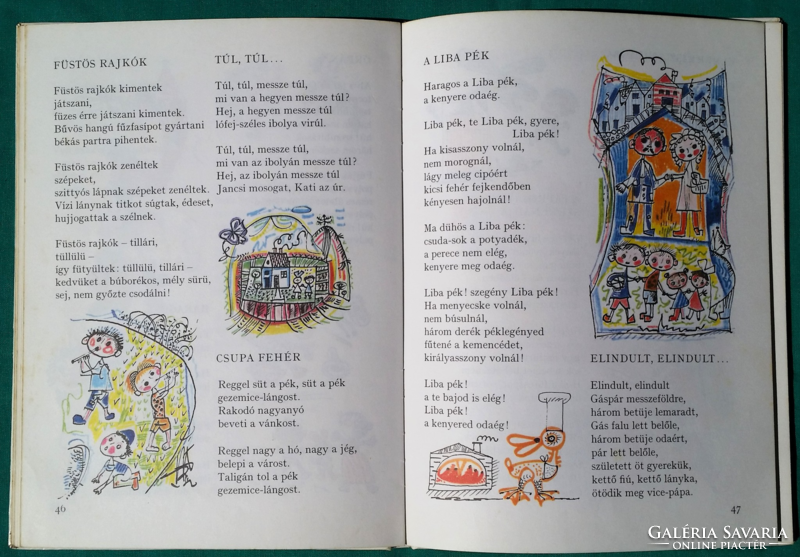 FÜSTÖS RAJKÓK
Füstös rajkók kimentek
játszani,
füzes érre játszani kimentek.
Bűvös hangú fűzfasípot gyártani
békás partra pihentek.
Füstös rajkók zenéltek
szépeket,
szittyós lápnak szépeket zenéltek.
Vízi lánynak titkot súgtak, édeset,
hujjogattak a szélnek.
Füstös rajkók – tillári,
tüllülü –
így fütyültek: tüllülü, tillári –
kedvüket a búborékos, mély sürü,
sej, nem győzte csodálni!
46
TÚL, TÚL...
Túl, túl, messze túl,
mi van a hegyen messze túl?
Hej, a hegyen messze túl
lófej-széles ibolya virúl.
Túl, túl, messze túl,
mi van az ibolyán messze túl?
Hej, az ibolyán messze túl
Jancsi mosogat, Kati az úr.
CSUPA FEHÉR
Reggel süt a pék, süt a pék
gezemice-lángost.
Rakodó nagyanyó
beveti a vánkost.
Reggel nagy a hó, nagy a jég,
belepi a várost.
Taligán tol a pék
gezemice-lángost.
A LIBA PÉK
Haragos a Liba pék,
a kenyere odaég.
Liba pék, te Liba pék, gyere,
Liba pék!
Ha kisasszony volnál,
nem morognál,
lágy meleg cipóért
kicsi fehér fejkendőben
kényesen hajolnál!
Ma dühös a Liba pék:
csuda-sok a potyadék,
a perece nem elég,
kenyere meg odaég.
Liba pék! szegény Liba pék!
Ha menyecske volnál,
nem búsulnál,
három derék péklegényed
fűtené a kemencédet,
királyasszony volnál!
Liba pék!
a te bajod is elég!
Liba pék!
a kenyered odaég!
ELINDULT, ELINDULT...
Elindult, elindult
Gáspár messzeföldre,
három betüje lemaradt,
Gás falu lett belőle,
három betüje odaért,
pár lett belőle,
született öt gyerekük,
kettő fiú, kettő lányka,
ötödik meg vice-pápa.
47
GALÉRIA SAVARIA
ONLINE PIACTÉR